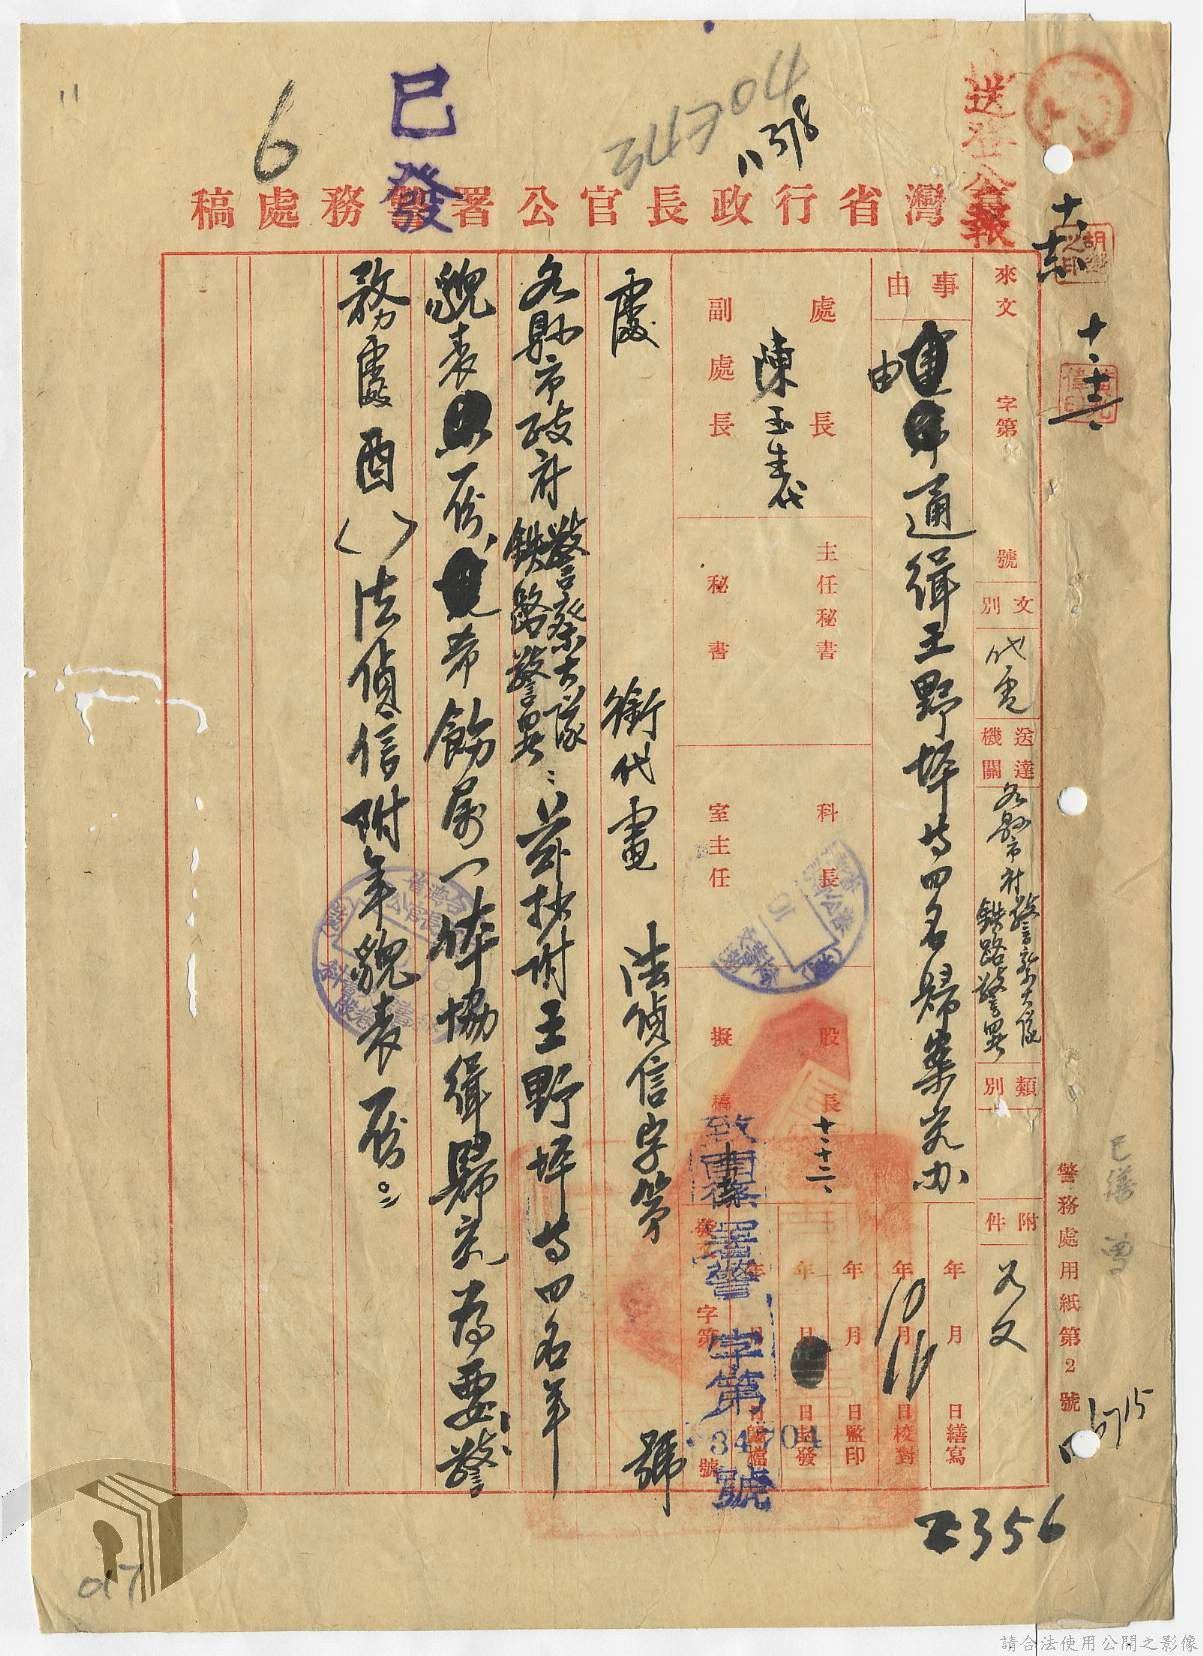 送登公報
11
6
34704
11378
已發
灣省行政長官公署警務處稿
來文 字第 號
文別 代電
送達機關 各縣市府 警察大隊 鐵路警署
類別
附件 如文
事由
電希通緝王野坪等四名歸案究办
由
處長
陳玉生代
副處長
主任秘書
秘書
科長
室主任
股長
擬稿
十、十二、
年 月 日繕寫
年 月 日校對
10 16
年 月 日監印
年 月 日封發
年 月 日歸檔
發 字第 號
致 署警 字第 34704 號
處 銜代電 法偵信字第 號
各縣市政府 警察大隊 鐵路警署：茲抄附王野坪等四名年
貌表一份希飭屬一体協緝歸究為要警
務處酉（ ）法偵信附年貌表一份。
警務處用紙第2號
已繕
2356
017
請合法使用公開之影像